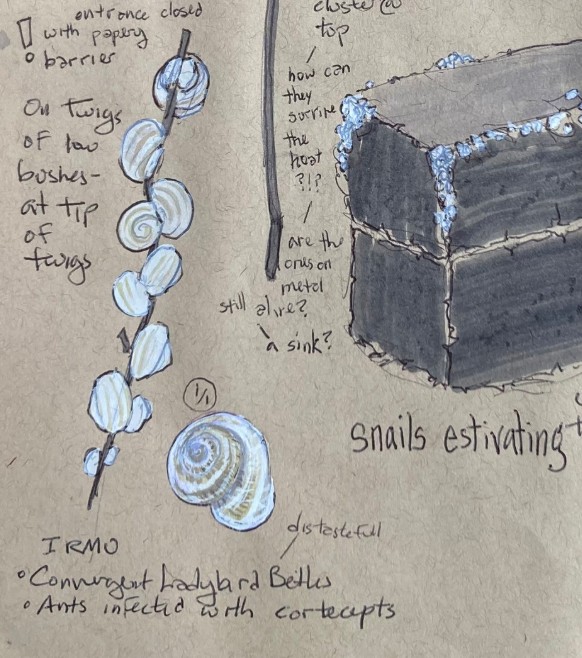 entrance closed
with papery
barrier
On twigs
of low
bushes-
at tip
of
twigs
cluster @
top
how can
they
survive
the
heat
?!?
are the
ones on
metal
still alive?
a sink?
snails estivating
1/1
distastefull
IRMO
• Convergent Ladybird Betles
• Ants infected with cortecepts